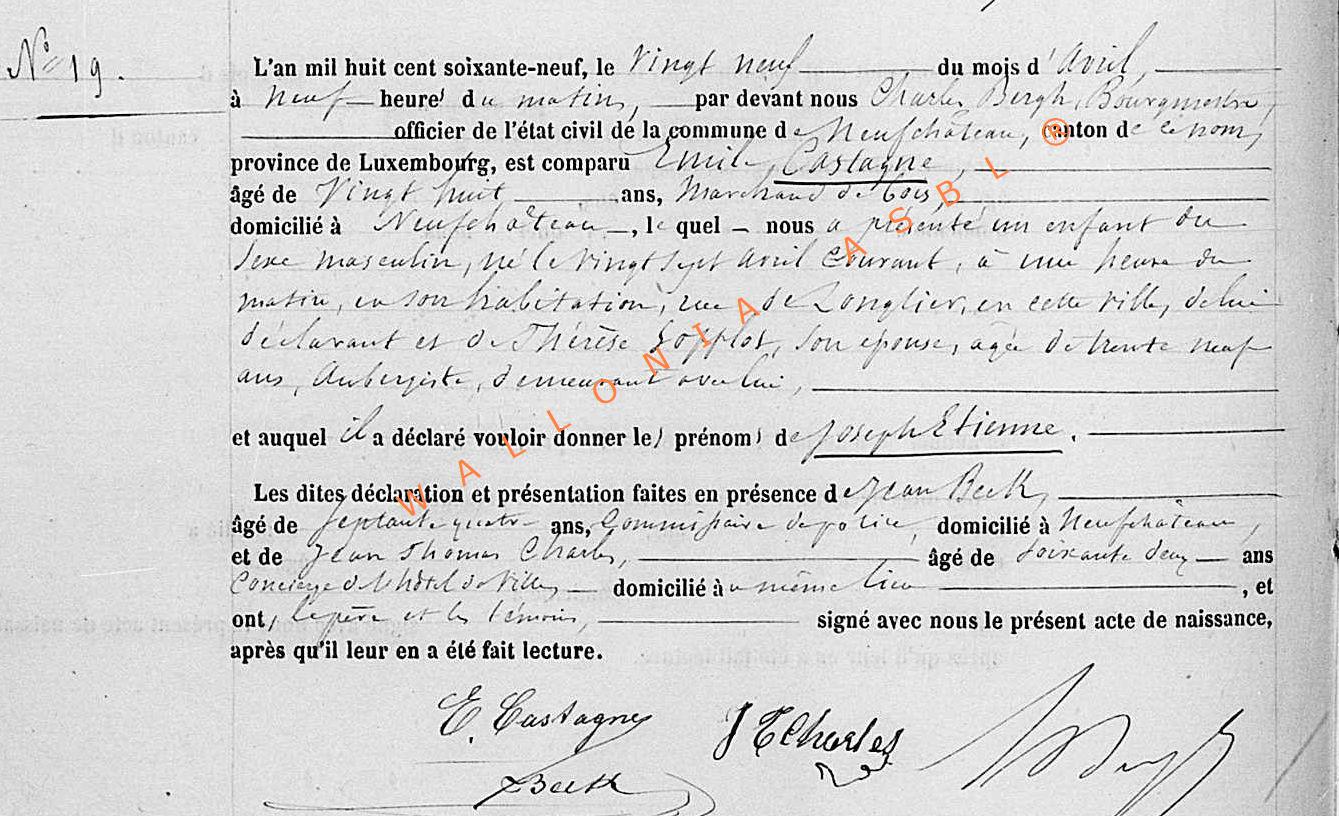 N° 19.
L'an mil huit cent soixante-neuf, le Vingt neuf du mois d'Avril,
à neuf heures du matin, par devant nous Charles Bergh, Bourgmestre,
officier de l'état civil de la commune de Neufchâteau, canton de ce nom,
province de Luxembourg, est comparu Emile Castagne,
âgé de Vingt huit ans, Marchand de bois,
domicilié à Neufchâteau, le quel nous a présenté un enfant du
sexe masculin, né le vingt sept avril courant, à une heure du
matin, en son habitation, rue de Longlier, en cette ville, de lui
déclarant et de Thérèse, son épouse, agée de trente neuf
ans, Aubergiste, demeurant avec lui,
et auquel il a déclaré vouloir donner les prénoms de Joseph Etienne.
Les dites déclaration et présentation faites en présence de Jean Beck,
âgé de septante quatre ans, Commissaire de police, domicilié à Neufchâteau,
et de Jean Thomas Charles, âgé de soixante deux ans
Concierge de l'hôtel de Ville, domicilié au même lieu, et
ont, le père et les témoins, signé avec nous le présent acte de naissance,
après qu'il leur en a été fait lecture.
E. Castagne
J T Charles
Beck
WALLONIA ASBL ®